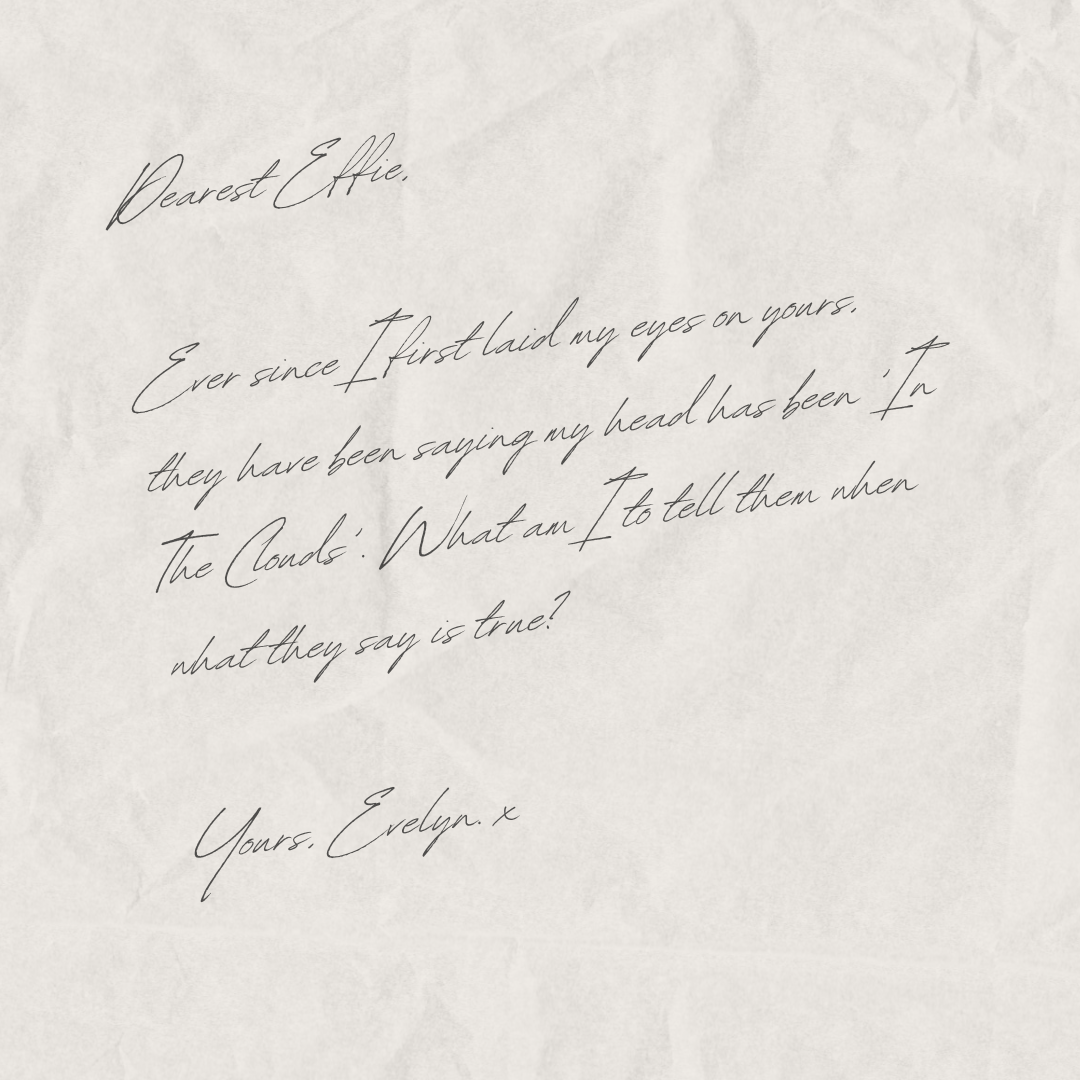 Dearest Effie,
Ever since I first laid my eyes on yours,
they have been saying my head has been 'In
The Clouds'. What am I to tell them when
what they say is true?
Yours, Evelyn. x